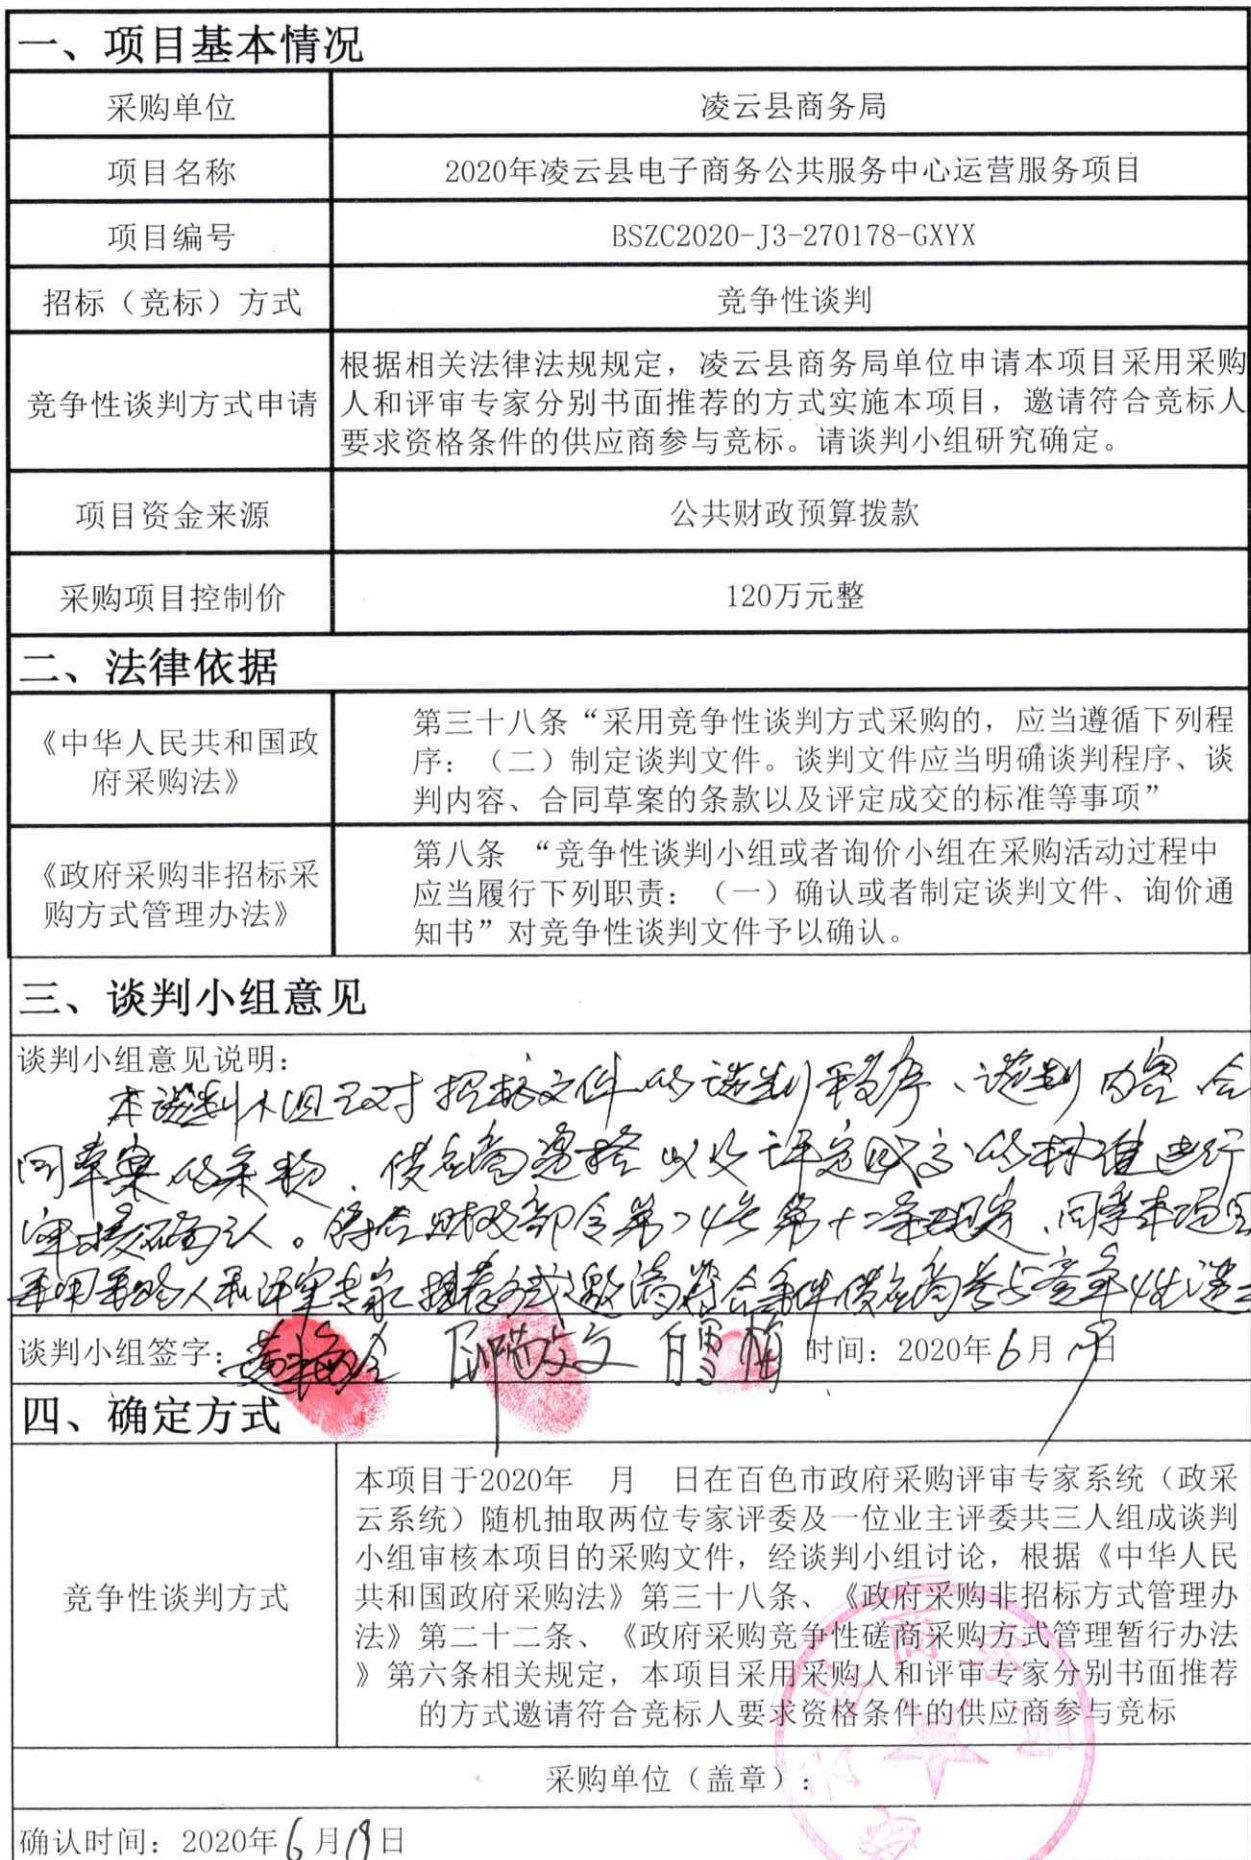 一、项目基本情况
采购单位
凌云县商务局
项目名称
2020年凌云县电子商务公共服务中心运营服务项目
项目编号
BSZC2020-J3-270178-GXYX
招标（竞标）方式
竞争性谈判
竞争性谈判方式申请
根据相关法律法规规定，凌云县商务局单位申请本项目采用采购
人和评审专家分别书面推荐的方式实施本项目，邀请符合竞标人
要求资格条件的供应商参与竞标。请谈判小组研究确定。
项目资金来源
公共财政预算拨款
采购项目控制价
120万元整
二、法律依据
《中华人民共和国政
府采购法》
第三十八条“采用竞争性谈判方式采购的，应当遵循下列程
序：（二）制定谈判文件。谈判文件应当明确谈判程序、谈
判内容、合同草案的条款以及评定成交的标准等事项”
《政府采购非招标采
购方式管理办法》
第八条 “竞争性谈判小组或者询价小组在采购活动过程中
应当履行下列职责：（一）确认或者制定谈判文件、询价通
知书”对竞争性谈判文件予以确认。
三、谈判小组意见
谈判小组意见说明：
本谈判小组已对招标文件的谈判程序、谈判内容、合
同草案的条款、供应商资格以及评定成交的标准进行
审核确认。符合财政部令第74号第十二条规定、同意本项目
采用采购人和评审专家推荐方式邀请符合条件供应商参与竞争性谈
谈判小组签字：
时间：2020年6月 日
四、确定方式
竞争性谈判方式
本项目于2020年 月 日在百色市政府采购评审专家系统（政采
云系统）随机抽取两位专家评委及一位业主评委共三人组成谈判
小组审核本项目的采购文件，经谈判小组讨论，根据《中华人民
共和国政府采购法》第三十八条、《政府采购非招标方式管理办
法》第二十二条、《政府采购竞争性磋商采购方式管理暂行办法
》第六条相关规定，本项目采用采购人和评审专家分别书面推荐
的方式邀请符合竞标人要求资格条件的供应商参与竞标
采购单位（盖章）：
确认时间：2020年6月19日